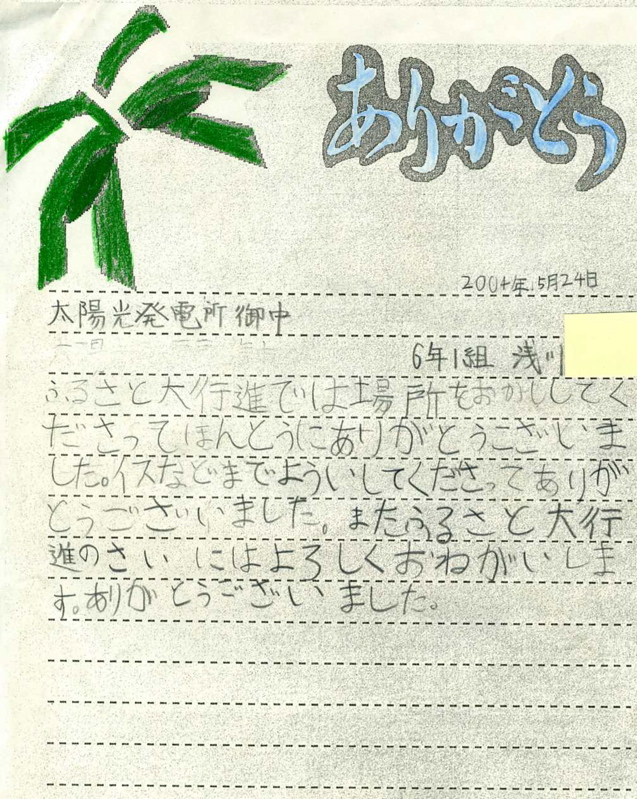 ありがとう
2004年5月24日
太陽光発電所御中
6年1組 浅川
ふるさと大行進では場所をおかししてく
ださってほんとうにありがとうございま
した。イスなどまでよういしてくださってありが
とうございました。またふるさと大行
進のさいにはよろしくおねがいしま
す。ありがとうございました。